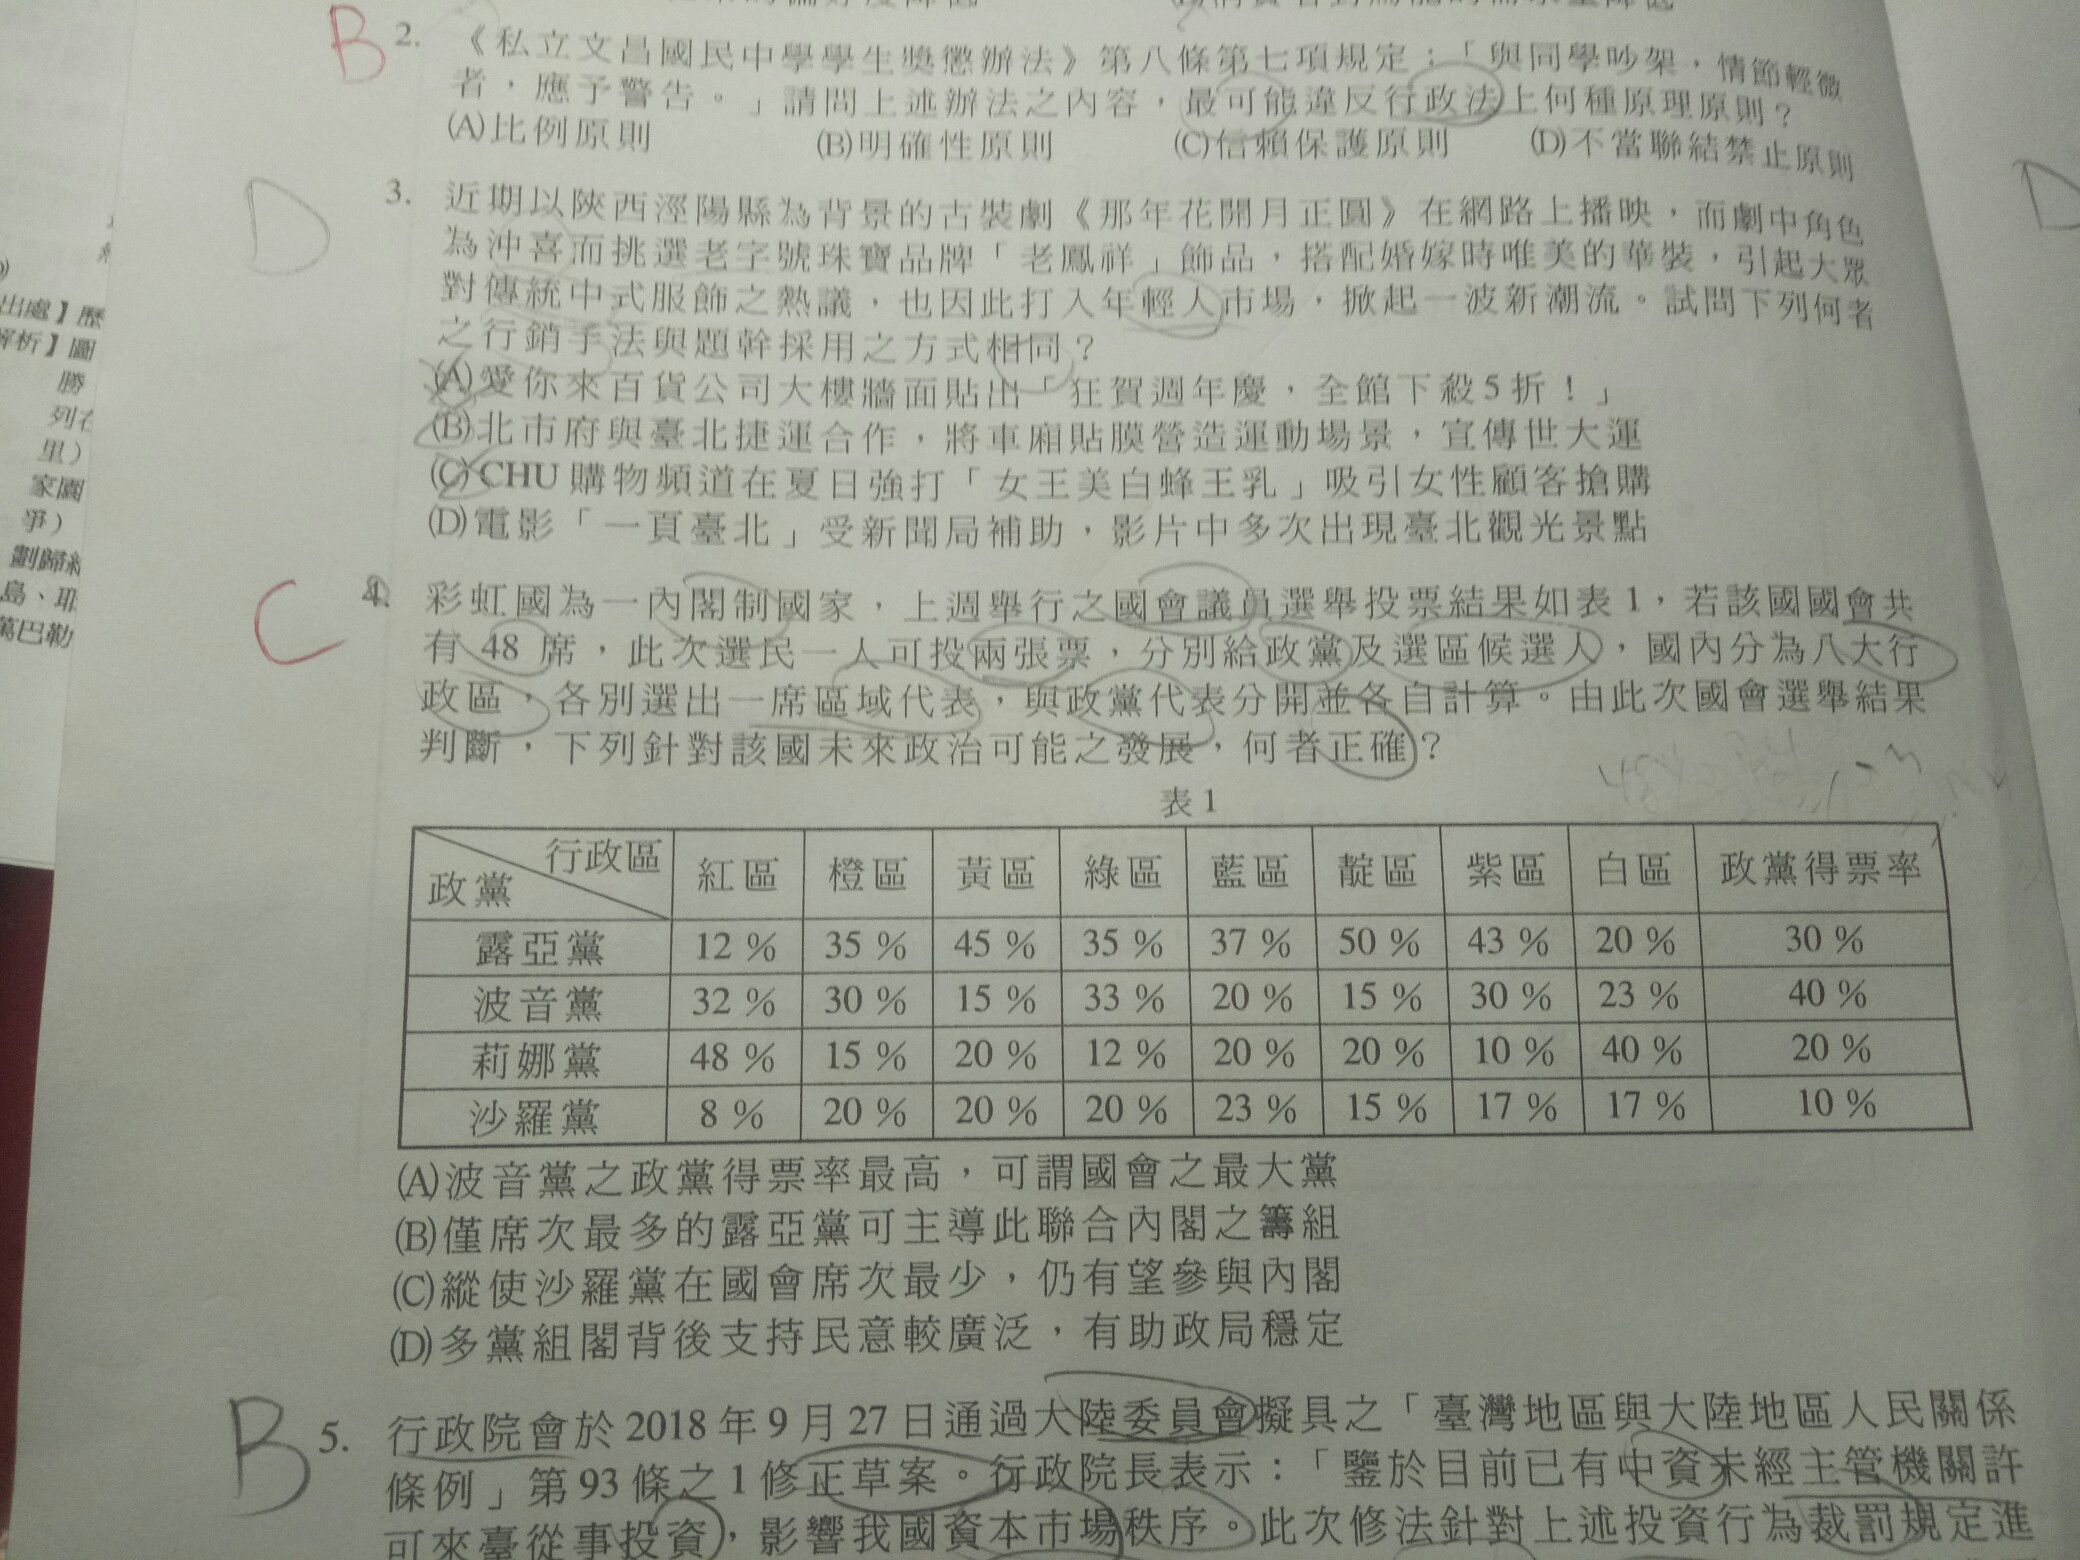 B
2. 《私立文昌國民中學學生獎懲辦法》第八條第七項規定：「與同學吵架，情節輕微
者，應予警告。」請問上述辦法之內容，最可能違反行政法上何種原理原則？
(A)比例原則 (B)明確性原則 (C)信賴保護原則 (D)不當聯結禁止原則
D
3. 近期以陝西涇陽縣為背景的古裝劇《那年花開月正圓》在網路上播映，而劇中角色
為沖喜而挑選老字號珠寶品牌「老鳳祥」飾品，搭配婚嫁時唯美的華裝，引起大眾
對傳統中式服飾之熱議，也因此打入年輕人市場，掀起一波新潮流。試問下列何者
之行銷手法與題幹採用之方式相同？
(A)愛你來百貨公司大樓牆面貼出「狂賀週年慶，全館下殺5折！」
(B)北市府與臺北捷運合作，將車廂貼膜營造運動場景，宣傳世大運
(C)CHU購物頻道在夏日強打「女王美白蜂王乳」吸引女性顧客搶購
(D)電影「一頁臺北」受新聞局補助，影片中多次出現臺北觀光景點
C
4. 彩虹國為一內閣制國家，上週舉行之國會議員選舉投票結果如表1，若該國國會共
有48席，此次選民一人可投兩張票，分別給政黨及選區候選人，國內分為八大行
政區，各別選出一席區域代表，與政黨代表分開並各自計算。由此次國會選舉結果
判斷，下列針對該國未來政治可能之發展，何者正確？
表1
行政區 政黨 紅區 橙區 黃區 綠區 藍區 靛區 紫區 白區 政黨得票率
露亞黨 12% 35% 45% 35% 37% 50% 43% 20% 30%
波音黨 32% 30% 15% 33% 20% 15% 30% 23% 40%
莉娜黨 48% 15% 20% 12% 20% 20% 10% 40% 20%
沙羅黨 8% 20% 20% 20% 23% 15% 17% 17% 10%
(A)波音黨之政黨得票率最高，可謂國會之最大黨
(B)僅席次最多的露亞黨可主導此聯合內閣之籌組
(C)縱使沙羅黨在國會席次最少，仍有望參與內閣
(D)多黨組閣背後支持民意較廣泛，有助政局穩定
B
5. 行政院會於2018年9月27日通過大陸委員會擬具之「臺灣地區與大陸地區人民關係
條例」第93條之1修正草案。行政院長表示：「鑒於目前已有中資未經主管機關許
可來臺從事投資，影響我國資本市場秩序。此次修法針對上述投資行為裁罰規定進
出處】歷
解析】圖
勝
列在
里）
家園
爭）
劃歸
島、耶
萬巴勒
D